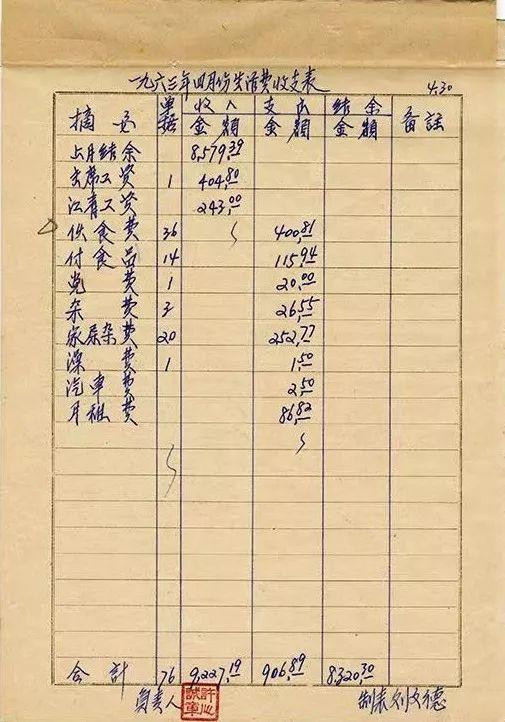 一九六三年四月份生活费收支表 4.30
摘要 单据 收入金额 支出金额 结余金额 备註
上月结余 8,579.39
主席工资 1 404.80
江青工资 243.00
伙食费 36 400.81
付食品 14 115.94
党费 1 20.00
杂费 3 26.55
家属杂费 20 252.77
澡费 1 1.50
汽車费 2.50
月租费 86.82
合計 76 9,227.19 906.89 8320.30
負责人 制表 刘文德